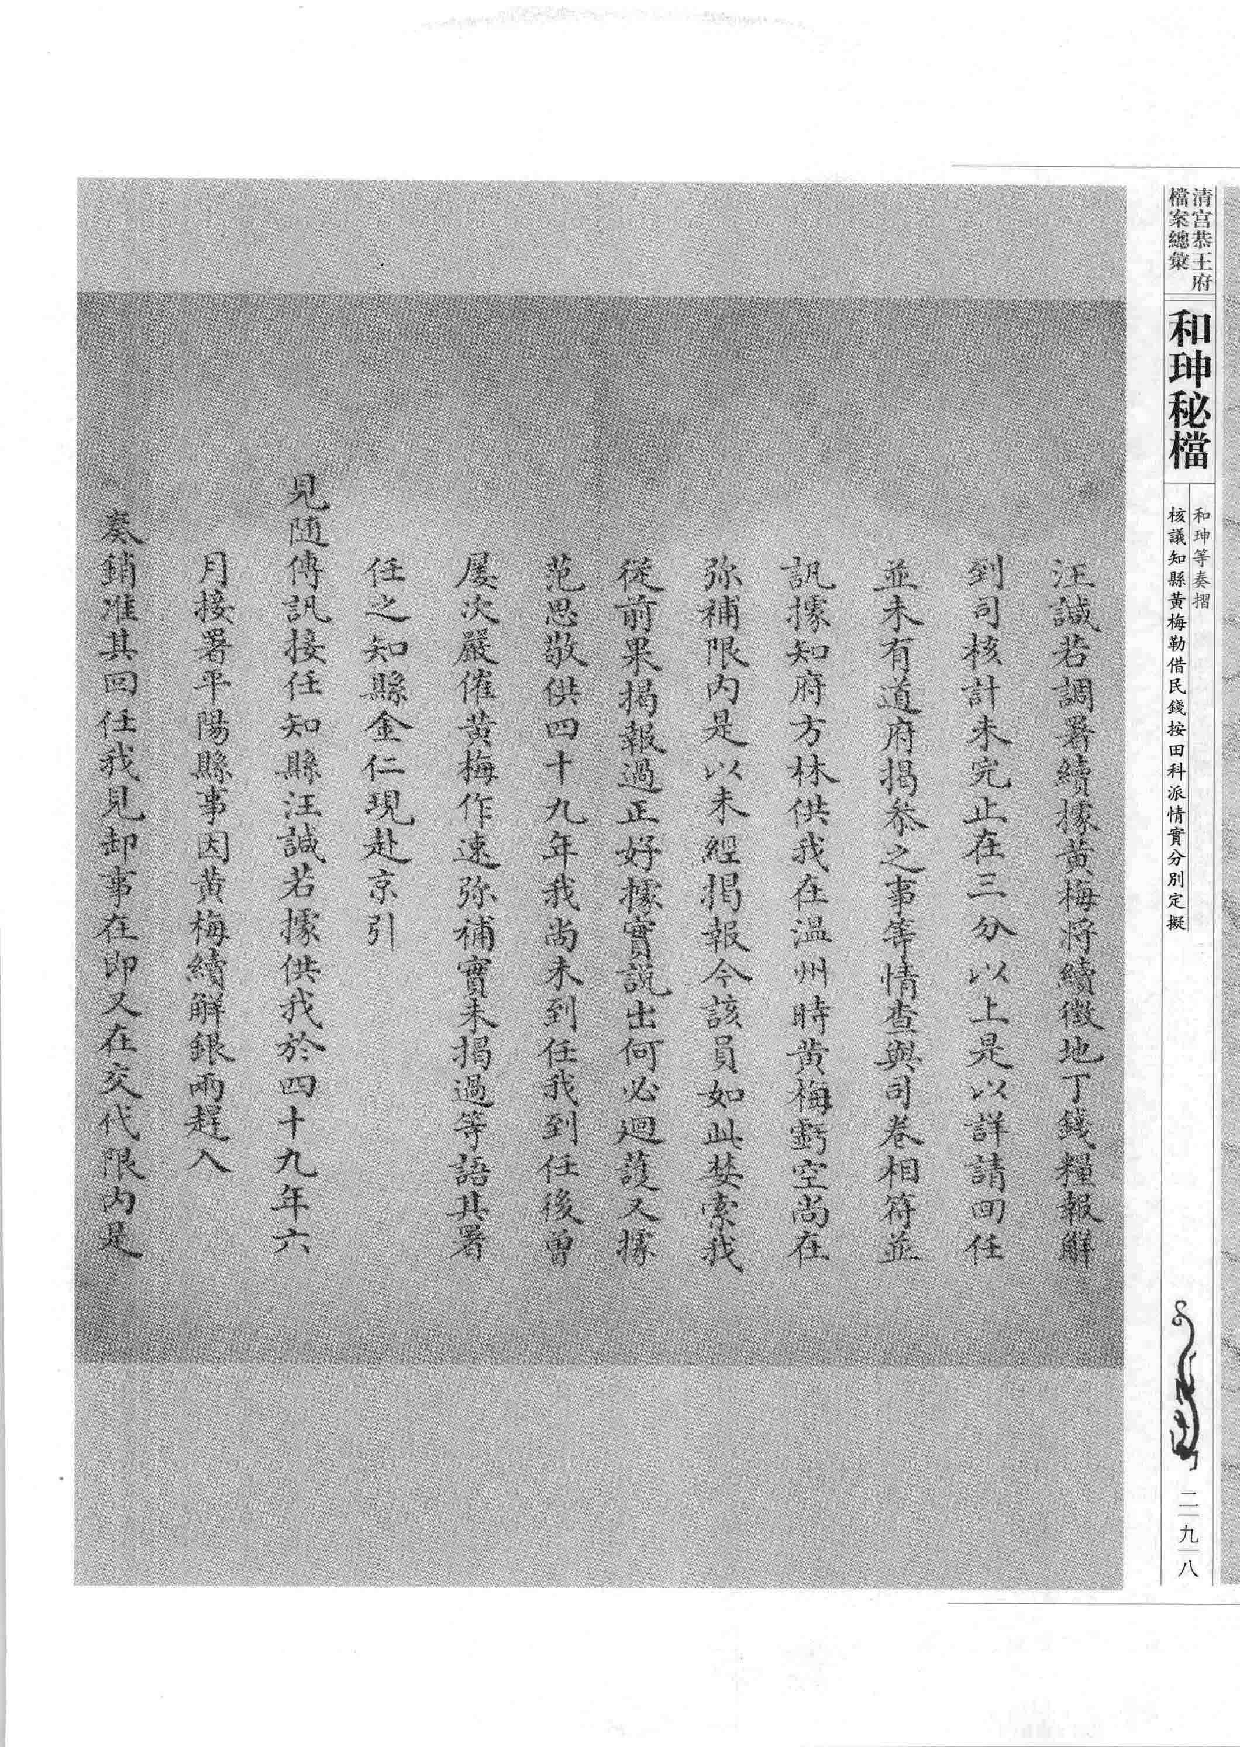 清宮恭王府
檔案總彙
和珅秘檔
和珅等奏摺
核議知縣黃梅勒借民錢按田科派情實分別定擬
二九八
汪誠若調署續據黃梅將續徵地丁錢糧報解
到司核計未完止在三分以上是以詳請回任
並未有道府揭叅之事等情查與司卷相符並
訊據知府方林供我在溫州時黃梅虧空尚在
弥補限內是以未經揭報今該員如此婪索我
從前果揭報過正好據實說出何必迴護又據
范思敬供四十九年我尚未到任我到任後曾
屢次嚴催黃梅作速弥補實未揭過等語其署
任之知縣金仁現赴京引
見随傳訊接任知縣汪誠若據供我於四十九年六
月接署平陽縣事因黃梅續解銀兩趕入
奏銷准其回任我見卸事在即又在交代限內是